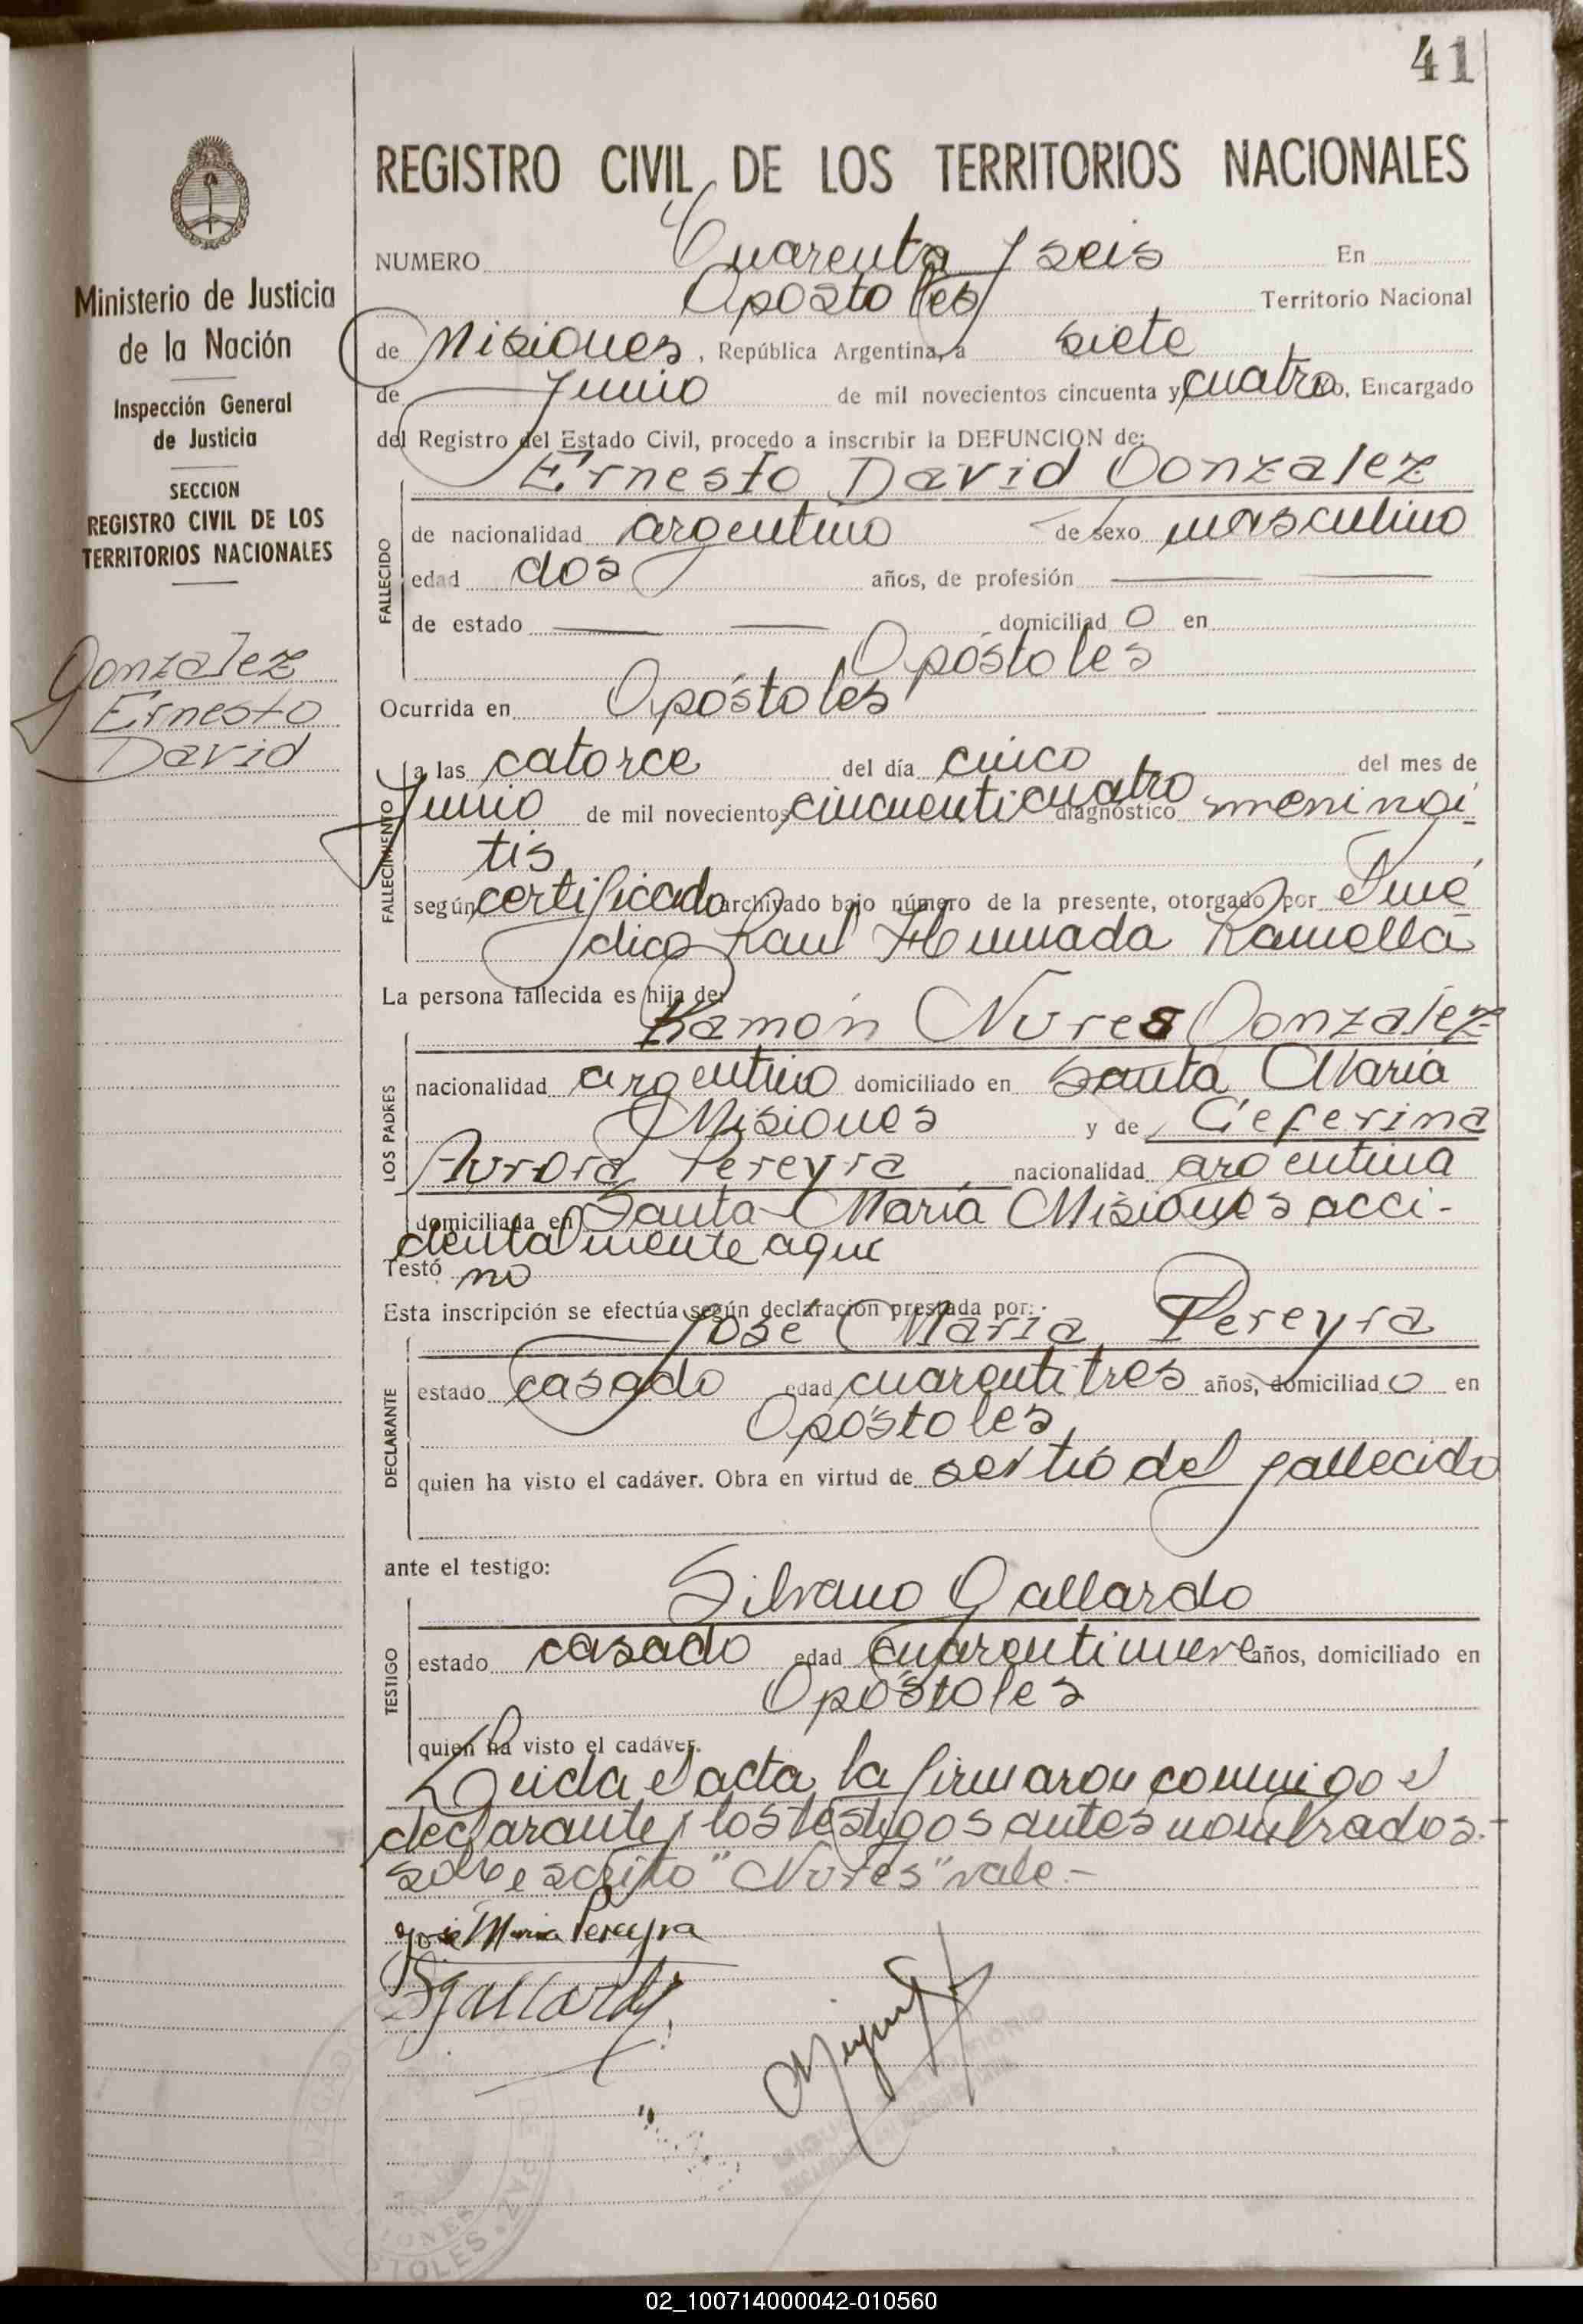 41
REGISTRO CIVIL DE LOS TERRITORIOS NACIONALES
Ministerio de Justicia
de la Nación
Inspección General
de Justicia
SECCION
REGISTRO CIVIL DE LOS
TERRITORIOS NACIONALES
Gonzalez
Ernesto
David
NUMERO Cuarenta y seis En
Apóstoles Territorio Nacional
de Misiones, República Argentina, a siete
de Junio de mil novecientos cincuenta y cuatro yo, Encargado
del Registro del Estado Civil, procedo a inscribir la DEFUNCION de:
Ernesto David Gonzalez
FALLECIDO
de nacionalidad argentino de sexo masculino
edad dos años, de profesión
de estado domiciliado en
Apóstoles
Ocurrida en Apóstoles
FALLECIMIENTO
a las catorce del día cinco del mes de
Junio de mil novecientos cincuenticuatro diagnóstico meningi
tis
según certificado archivado bajo número de la presente, otorgado por el mé
dico Raul Ramella
La persona fallecida es hija de:
LOS PADRES
Ramón Nures Gonzalez
nacionalidad argentino domiciliado en Santa María
Misiones y de Ceferina
Aurora Pereyra nacionalidad argentina
domiciliada en Santa María Misiones acci-
dentalmente aquí
Testó no
Esta inscripción se efectúa según declaración prestada por:
José María Pereyra
DECLARANTE
estado casado edad cuarentitres años, domiciliado en
Apóstoles
quien ha visto el cadáver. Obra en virtud de ser tío del fallecido
ante el testigo:
Silvano Gallardo
TESTIGO
estado casado edad cuarentinueve años, domiciliado en
Apóstoles
quien ha visto el cadáver.
Leida el acta la firmaron conmigo el
declarante y los testigos antes nombrados.-
sobre escrito "Nures" vale.-
José Maria Pereyra
SGallardo
APOSTOLES
02_100714000042-010560